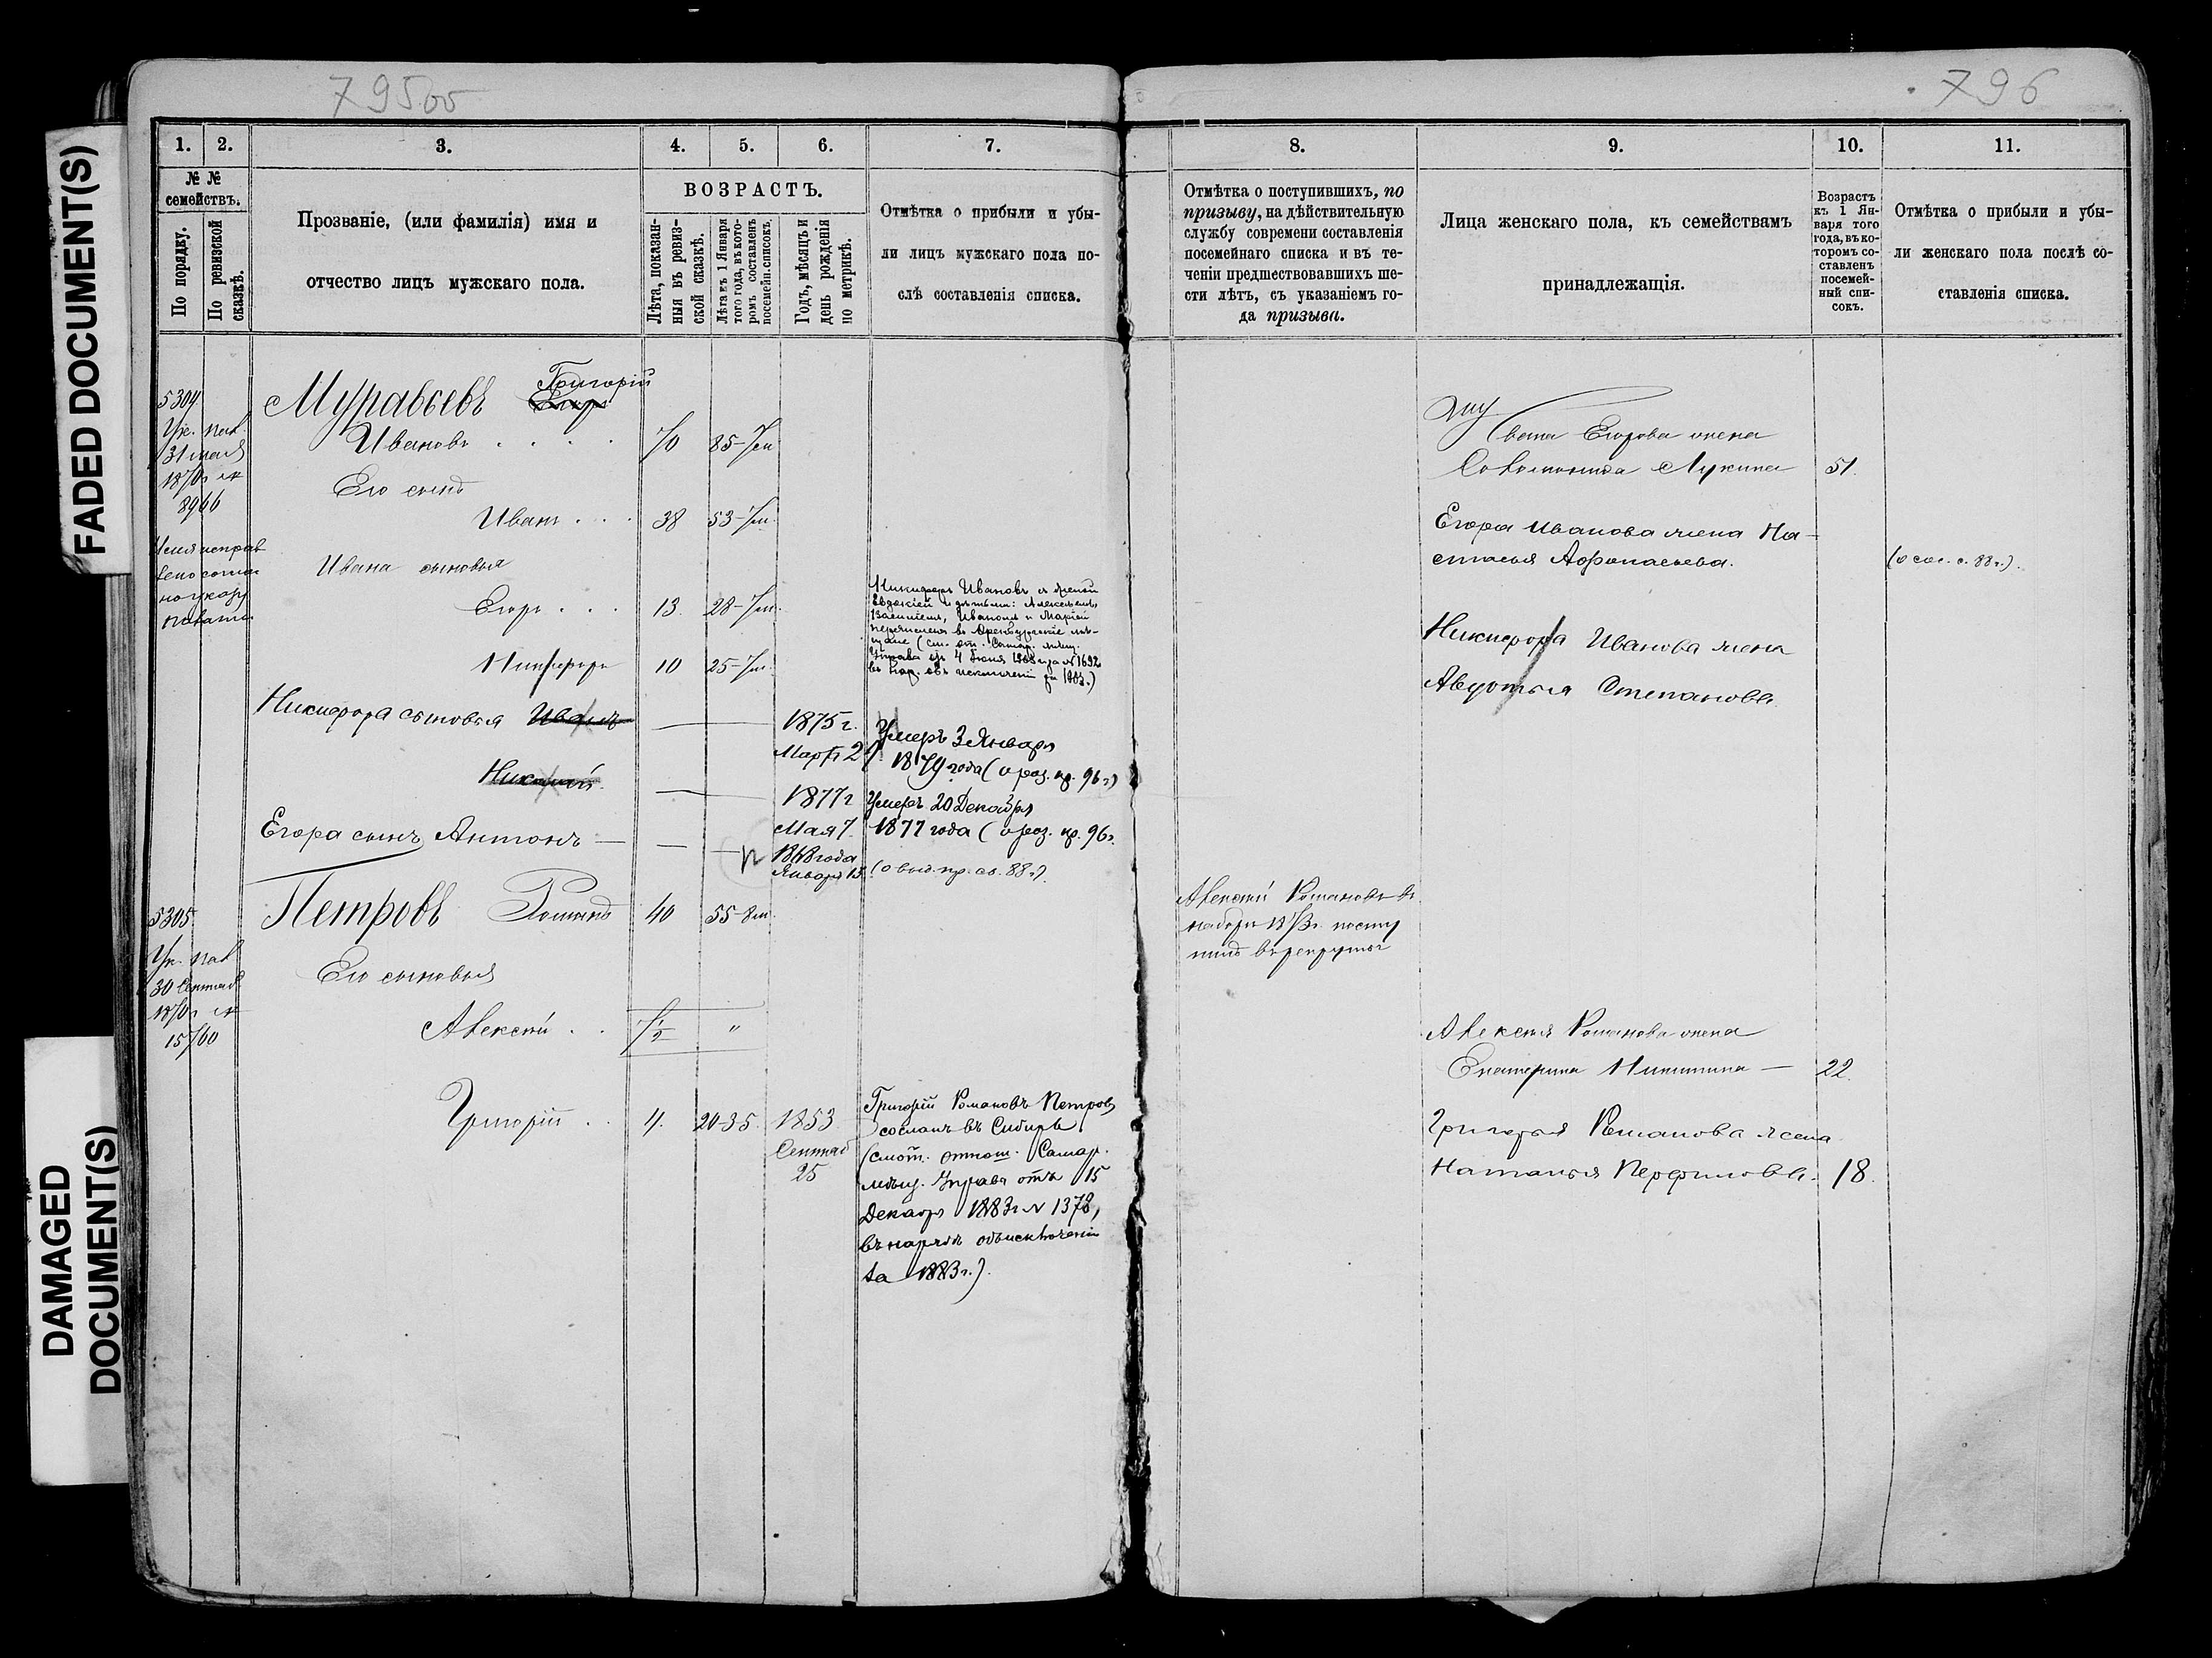 FADED DOCUMENT(S)
DAMAGED DOCUMENT(S)
795 об
796
1.
2.
3.
4.
5.
6.
7.
№ №
семействъ.
По порядку.
По ревизской
сказкѣ.
Прозваніе, (или фамилія) имя и
отчество лицъ мужскаго пола.
ВОЗРАСТЪ.
Лѣта, показан-
ныя въ ревиз-
ской сказкѣ.
Лѣта къ 1 Января
того года, въ кото-
ромъ составленъ
посемейн. списокъ.
Годъ, мѣсяцъ и
день рожденія
по метрикѣ.
Отмѣтка о прибыли и убы-
ли лицъ мужскаго пола по-
слѣ составленія списка.
5304
31 мая
8966
Муравьевъ Григорій
Ивановъ 70 85
Его сынъ
Иванъ 38 53
Ивана сыновья
Егоръ 13 28
Никифоръ 10 25
Никифоръ Ивановъ съ женой
Евдокіей и дѣтьми: Алексѣемъ,
Василіемъ, Иваномъ и Маріей
перечисленъ въ Оренбургскіе мѣ-
щане
Никифора сыновья Иванъ — 1875 г.
Умеръ 3 Января
1879 года
Николай — 1877 г
Умеръ 20 Декабря
Мая 7 1877 года
Егора сынъ Антонъ — 1868 года
Января 13
5305
Петровъ Романъ 40 55
Его сыновья
30 Сентяб
15760
Алексѣй "
Григорій 4. 20-35. 1853
Сентяб
25
Григорій Романовъ Петровъ
сосланъ въ Сибирь
(смот. отнош. Самар.
мѣщ. Управы отъ 15
Декабря 1883 г № 1378,
въ нарядѣ объ исключеніи
за 1883 г.).
8.
9.
10.
11.
Отмѣтка о поступившихъ, по
призыву, на дѣйствительную
службу современи составленія
посемейнаго списка и въ те-
ченіи предшествовавшихъ ше-
сти лѣтъ, съ указаніемъ го-
да призыва.
Лица женскаго пола, къ семействамъ
принадлежащія.
Возрастъ
къ 1 Ян-
варя того
года, въ ко-
торомъ со-
ставленъ
посемей-
ный спи-
сокъ.
Отмѣтка о прибыли и убы-
ли женскаго пола послѣ со-
ставленія списка.
Ивана Егорова жена
Соломонида Лукина 51.
Егора Иванова жена На-
стасья Афонасьева.
Никифора Иванова жена
Авдотья Степанова
Алексѣй Романовъ въ
наборъ 1873 г. посту
пилъ въ рекруты
Алексѣя Романова жена
Екатерина Никитина — 22.
Григорья Романова жена
Наталья Перфилова. 18.